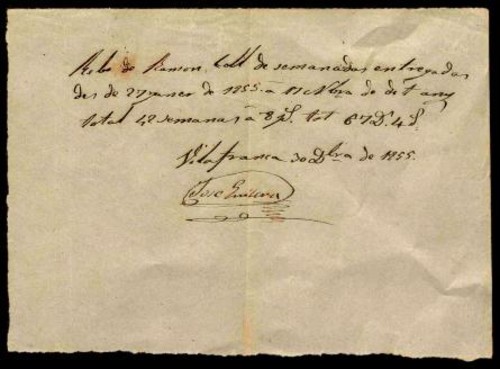 Rebo de Ramon Coll de semanadas entregadas
des de 27 janer de 1855 a 11 Nbre de dit any
total 42 semanas á 8 P. tot 67 D. 4 P.
Vilafranca 30 Dbra de 1855.
Jose